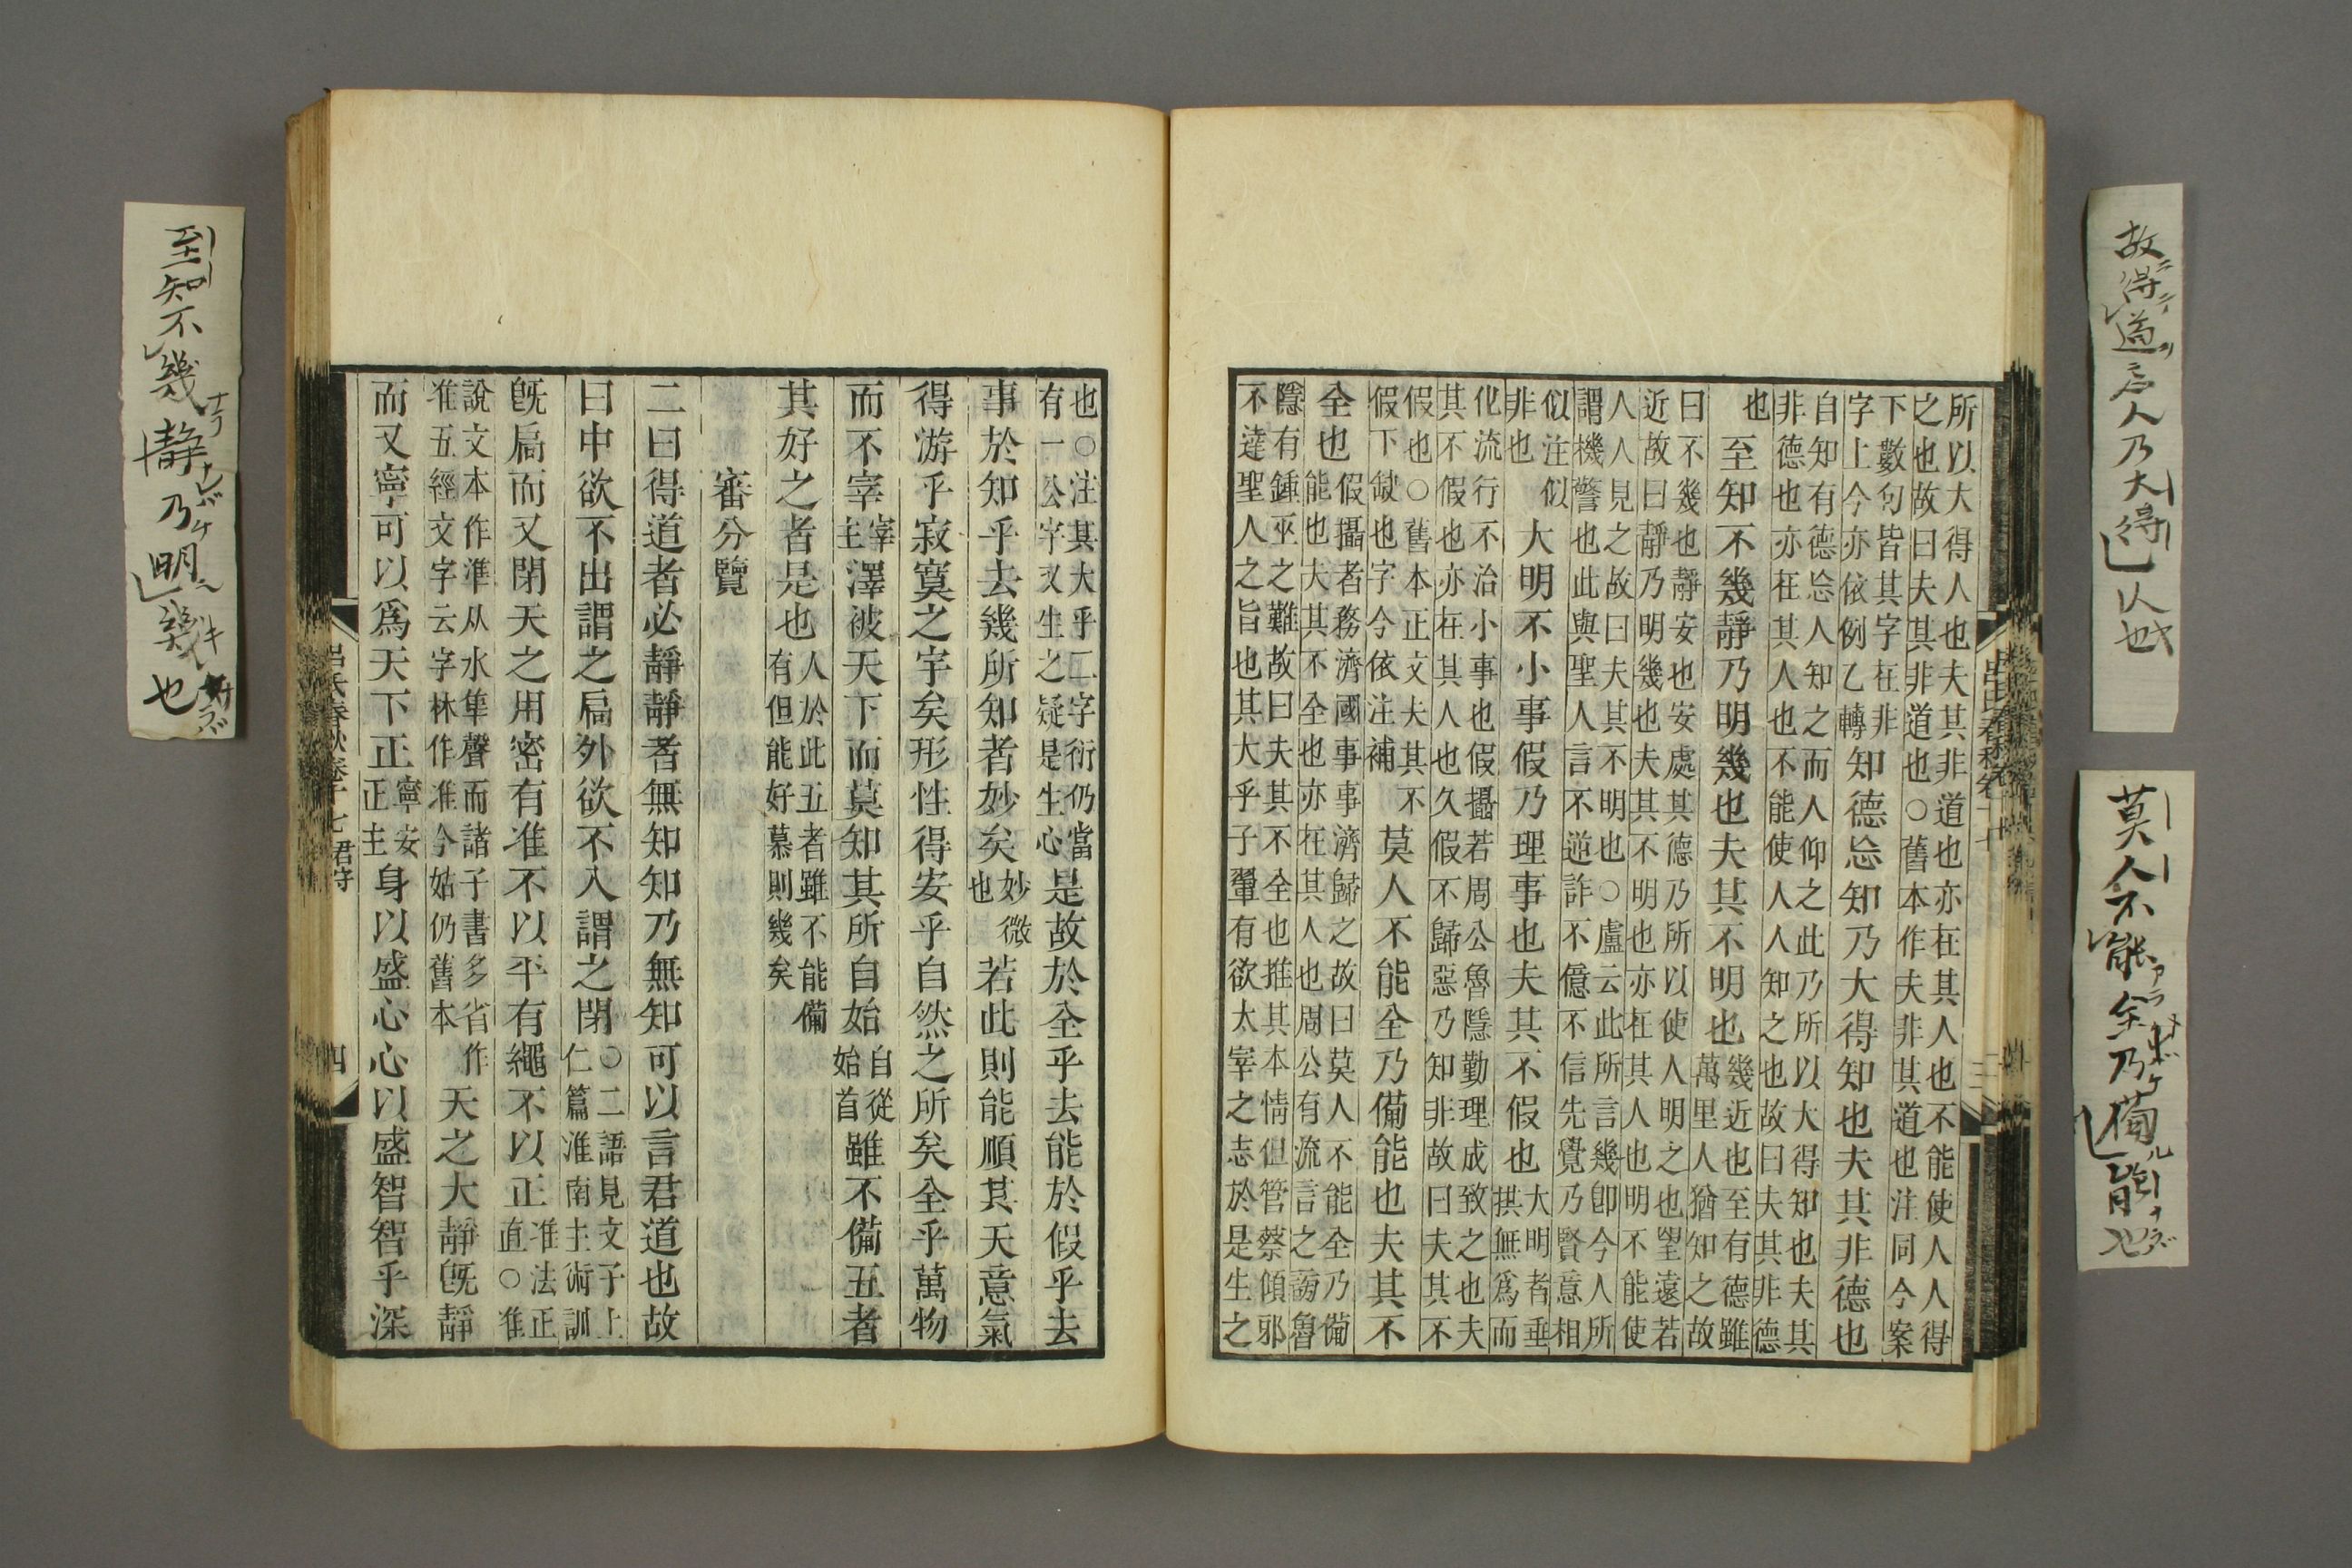 所以大得人也夫其非道也亦在其人也不能使人人得
之也故曰夫其非道也○舊本作夫非其道也注同今案
下數句皆其字在非
字上今亦依例乙轉
知德忘知乃大得知也夫其非德也
自知有德忘人知之而人仰之此乃所以大得知也夫其
非德也亦在其人也不能使人人知之也故曰夫其非德
也
至知不幾靜乃明幾也夫其不明也
幾近也至有德雖
萬里人猶知之故
曰不幾也靜安也安處其德乃所以使人明之也望遠若
近故曰靜乃明幾也夫其不明也亦在其人也明不能使
人人見之故曰夫其不明也○盧云此所言幾卽今人所
謂機警也此與聖人言不逆詐不億不信先覺乃賢意相
似注似
非也
大明不小事假乃理事也夫其不假也
大明者垂
拱無爲而
化流行不治小事也假攝若周公魯隱勤理成致之也夫
其不假也亦在其人也久假不歸惡乃知非故曰夫其不
假也○舊本正文夫其不
假下缺也字今依注補
莫人不能全乃備能也夫其不
全也
假攝者務濟國事事濟歸之故曰莫人不能全乃備
能也夫其不全也亦在其人也周公有流言之謗魯
隱有鍾巫之難故曰夫其不全也推其本情但管蔡傾邪
不達聖人之旨也其大乎子翬有欲太宰之志於是生之
也○注其大乎二字衍仍當
有一公字又生之疑是生心
是故於全乎去能於假乎去
事於知乎去幾所知者妙矣
妙微
也
若此則能順其天意氣
得游乎寂寞之宇矣形性得安乎自然之所矣全乎萬物
而不宰
宰
主
澤被天下而莫知其所自始
自從
始首
雖不備五者
其好之者是也
人於此五者雖不能備
有但能好慕則幾矣
審分覽
二曰得道者必靜靜者無知知乃無知可以言君道也故
曰中欲不出謂之扃外欲不入謂之閉
○二語見文子上
仁篇淮南主術訓
旣扃而又閉天之用密有准不以平有繩不以正
准法正
直○准
說文本作準从水隼聲而諸子書多省作
准五經文字云字林作准今姑仍舊本
天之大靜旣靜
而又寧可以爲天下正
寧安
正主
身以盛心心以盛智智乎深
呂氏春秋卷十七 君守
四
故得道忘人乃大得人也
莫人不能全乃備能也
至知不幾靜乃明幾也